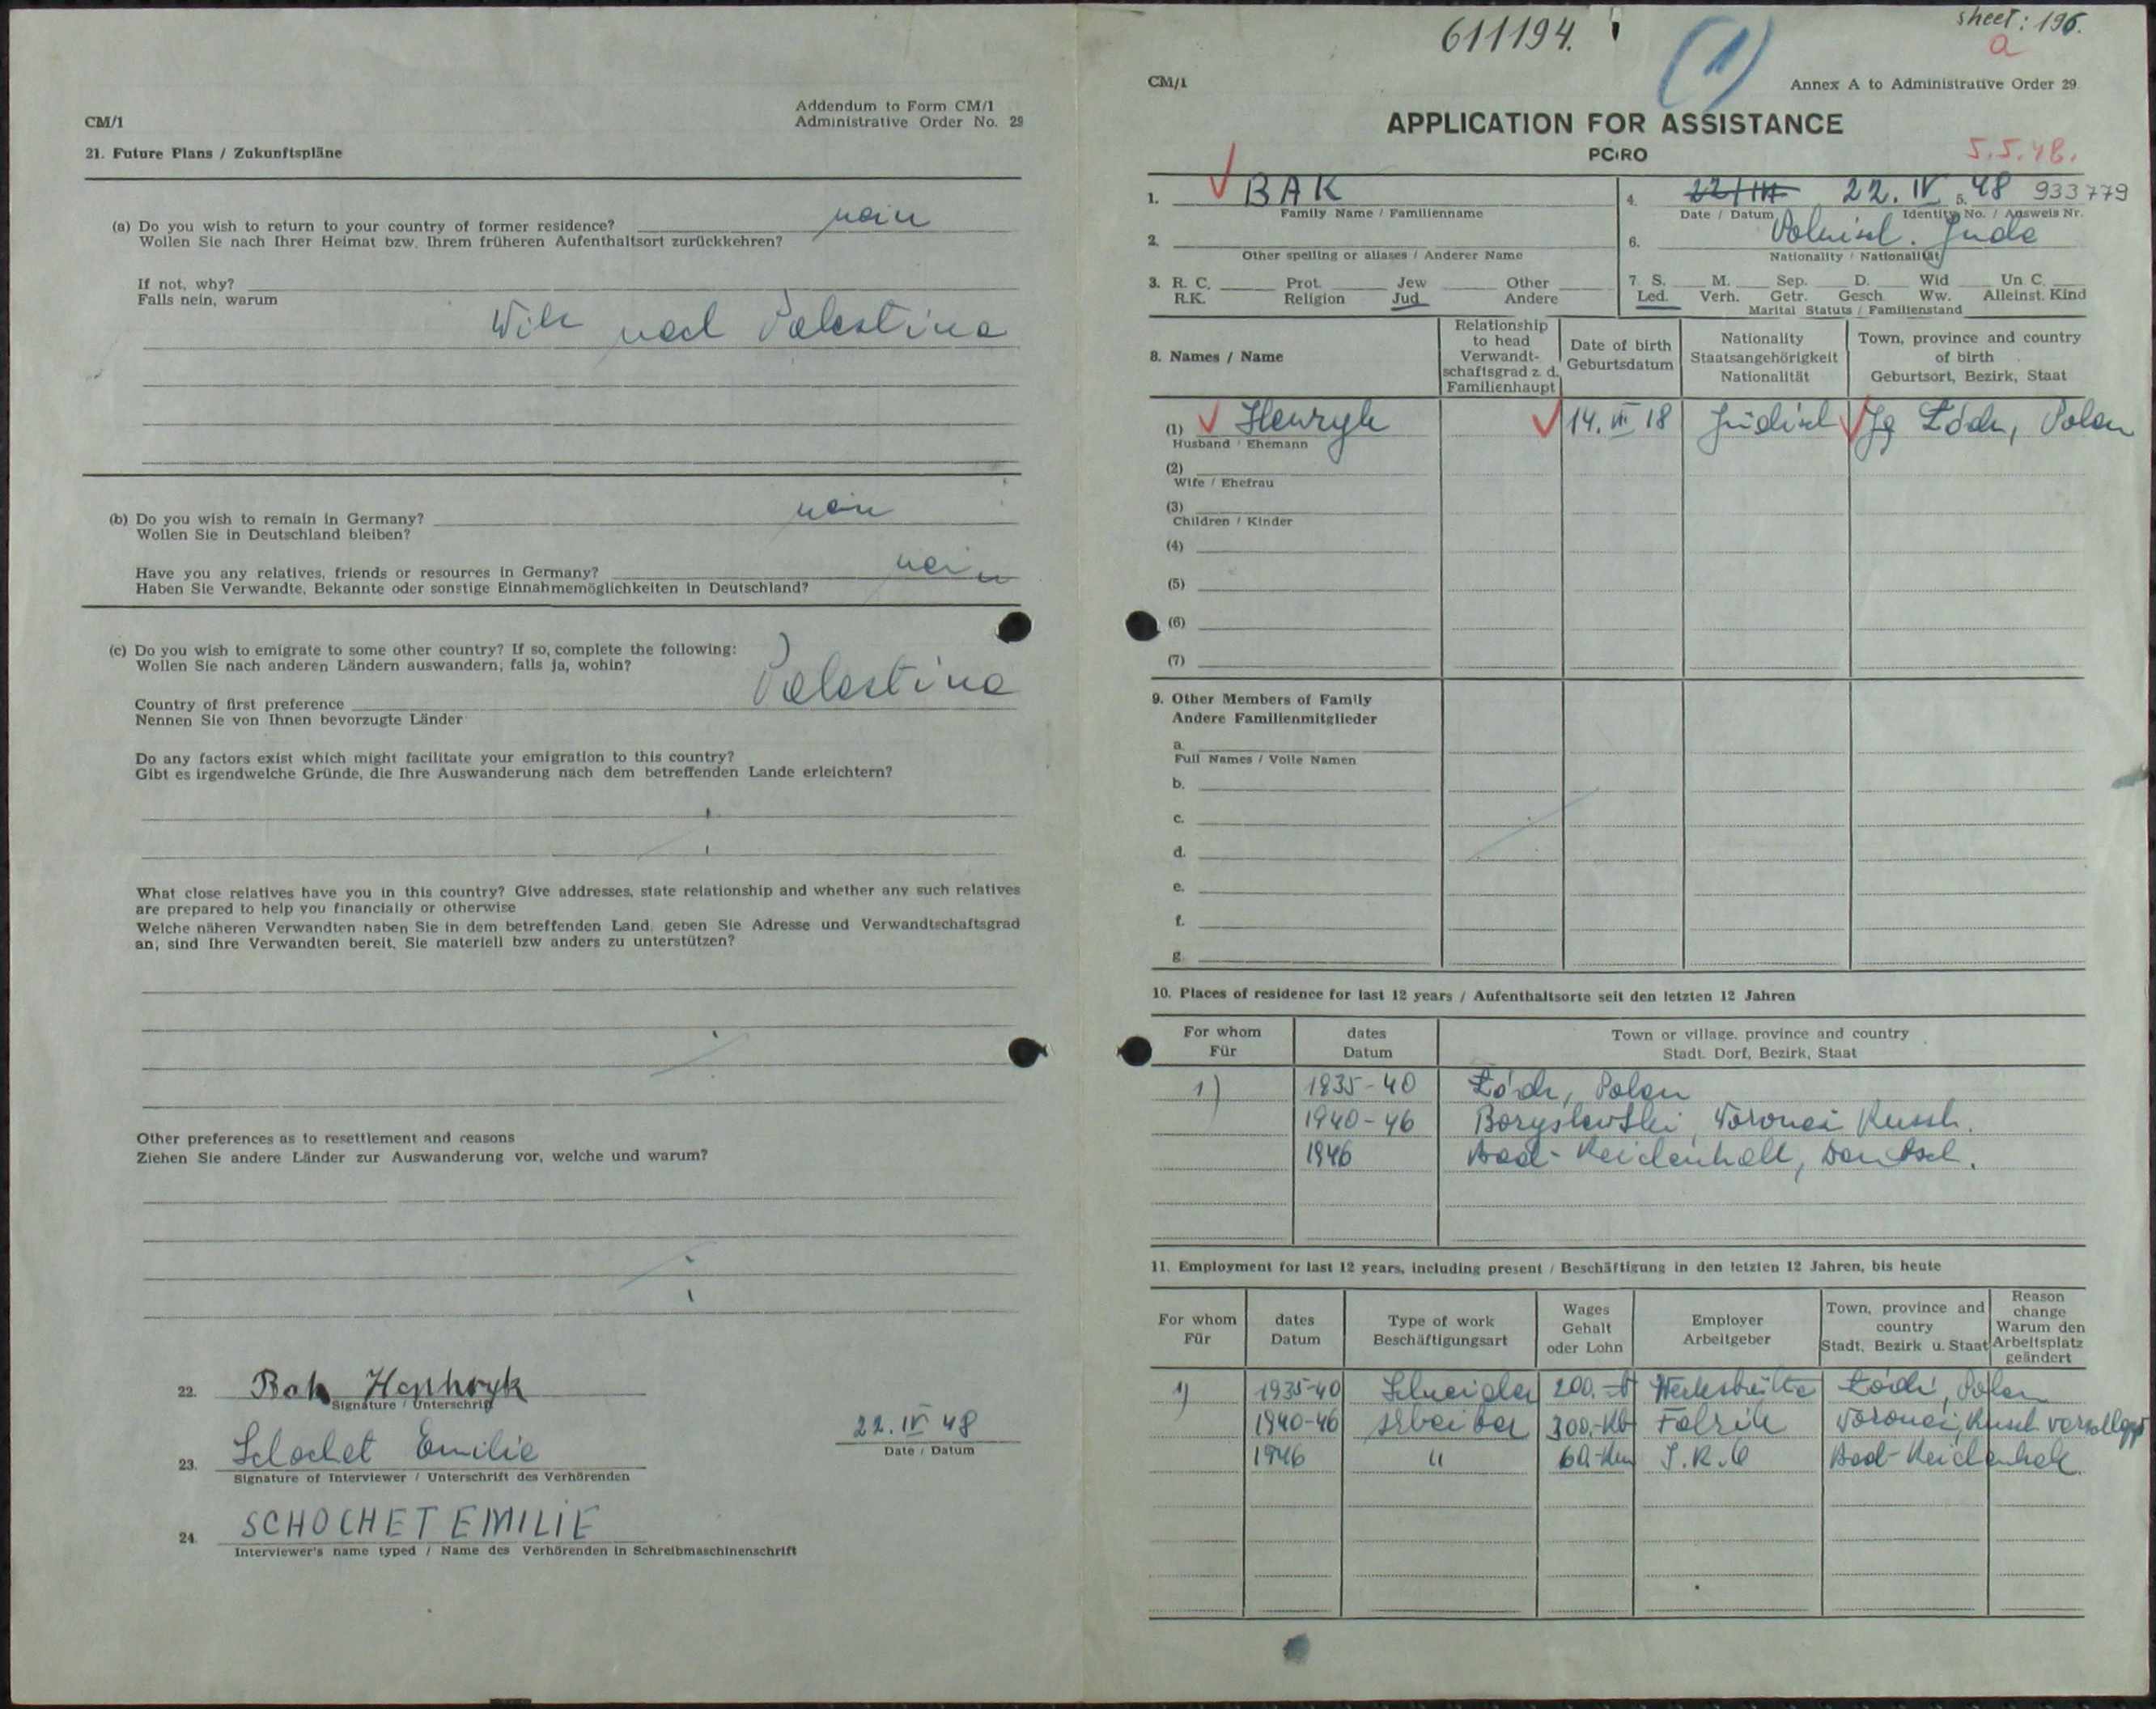 CM/1
Addendum to Form CM/1
Administrative Order No. 29
21. Future Plans / Zukunftspläne
(a) Do you wish to return to your country of former residence? nein
Wollen Sie nach Ihrer Heimat bzw. Ihrem früheren Aufenthaltsort zurückkehren?
If not, why?
Falls nein, warum
Will nach Palestina
(b) Do you wish to remain in Germany? nein
Wollen Sie in Deutschland bleiben?
Have you any relatives, friends or resources in Germany? nein
Haben Sie Verwandte, Bekannte oder sonstige Einnahmemöglichkeiten in Deutschland?
(c) Do you wish to emigrate to some other country? If so, complete the following:
Wollen Sie nach anderen Ländern auswandern, falls ja, wohin?
Country of first preference Palestina
Nennen Sie von Ihnen bevorzugte Länder
Do any factors exist which might facilitate your emigration to this country?
Gibt es irgendwelche Gründe, die Ihre Auswanderung nach dem betreffenden Lande erleichtern?
What close relatives have you in this country? Give addresses, state relationship and whether any such relatives
are prepared to help you financially or otherwise
Welche näheren Verwandten haben Sie in dem betreffenden Land, geben Sie Adresse und Verwandtschaftsgrad
an, sind Ihre Verwandten bereit, Sie materiell bzw anders zu unterstützen?
Other preferences as to resettlement and reasons
Ziehen Sie andere Länder zur Auswanderung vor, welche und warum?
22. Bak
Signature / Unterschrift
22. IV 48
Date / Datum
23. Schochet Emilie
Signature of Interviewer / Unterschrift des Verhörenden
24. SCHOCHET EMILIE
Interviewer's name typed / Name des Verhörenden in Schreibmaschinenschrift
611194.
(1)
sheet: 196.
a
CM/1
Annex A to Administrative Order 29
APPLICATION FOR ASSISTANCE
PCIRO
5.5.48.
1. BAK
Family Name / Familienname
4. 22. IV 48
Date / Datum
5. 933779
Identity No. / Ausweis Nr.
2.
Other spelling or aliases / Anderer Name
6. Polnisch. Jude
Nationality / Nationalität
3. R. C. Prot. Jew Other
R.K. Religion Jud Andere
7. S. M. Sep. D. Wid Un C.
Led. Verh. Getr. Gesch Ww. Alleinst. Kind
Marital Statuts / Familienstand
8. Names / Name
Relationship
to head
Verwandt-
schaftsgrad z. d.
Familienhaupt
Date of birth
Geburtsdatum
Nationality
Staatsangehörigkeit
Nationalität
Town, province and country
of birth
Geburtsort, Bezirk, Staat
(1) Henryk 14. III 18 Jüdisch Łódz, Polen
Husband / Ehemann
(2)
Wife / Ehefrau
(3)
Children / Kinder
(4)
(5)
(6)
(7)
9. Other Members of Family
Andere Familienmitglieder
a.
Full Names / Volle Namen
b.
c.
d.
e.
f.
g.
10. Places of residence for last 12 years / Aufenthaltsorte seit den letzten 12 Jahren
For whom
Für
dates
Datum
Town or village, province and country
Stadt. Dorf, Bezirk, Staat
1) 1935-40 Łódz, Polen
1940-46 Woronei Russl.
1946 Bad-Reichenhall, Deutschl.
11. Employment for last 12 years, including present / Beschäftigung in den letzten 12 Jahren, bis heute
For whom
Für
dates
Datum
Type of work
Beschäftigungsart
Wages
Gehalt
oder Lohn
Employer
Arbeitgeber
Town, province and
country
Stadt, Bezirk u. Staat
Reason
change
Warum den
Arbeitsplatz
geändert
1) 1935-40 Schneider 200. Łódz, Polen
1940-46 Arbeiter 300.-Rb Fabrik Woronei, Russl. verschleppt
1946 " I.R.O Bad-Reichenhall